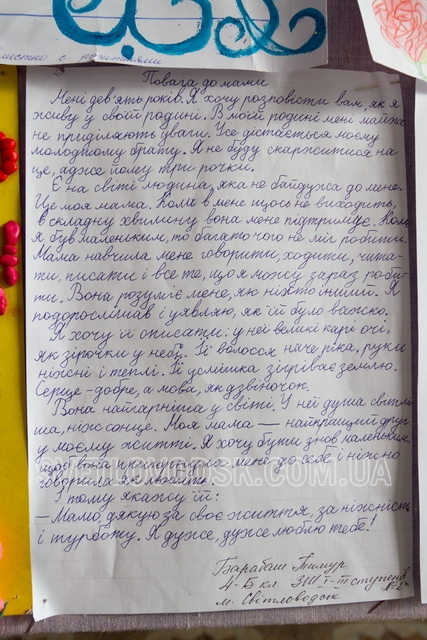 містно с
Повага до мами
Мені дев'ять років. Я хочу розповісти вам, як я
живу у своїй родині. В моїй родині мені майже
не приділяють уваги. Усе дістається моєму
молодшому брату. Я не буду скаржитися на
це, адже йому три рочки.
Є на світі людина, яка не байдужа до мене.
Це моя мама. Коли в мене щось не виходить,
в складну хвилину вона мене підтримує. Коли
я був маленьким, то багато чого не міг робити.
Мама навчила мене говорити, ходити, чита-
ти, писати і все те, що я можу зараз роби-
ти. Вона розуміє мене, як ніхто інший. Я
подорослішав і уявляю, як їй було важко.
Я хочу її описати: у неї великі карі очі,
як зірочки у небі. Її волосся наче ріка, руки
ніжні і теплі. Її усмішка зігріває землю.
Серце - добре, а мова, як дзвіночок.
Вона найгарніша у світі. У неї душа світлі-
ша, ніж сонце. Моя мама — найкращий друг
у моєму житті. Я хочу бути знов маленьким,
щоб вона пригорнула мене до себе і ніжно
говорила як любить.
І тому я кажу їй:
- Мамо, дякую за своє життя, за ніжність
і турботу. Я дуже, дуже люблю тебе!
SVETLOVODSK.COM.UA
Барабаш Тимур
4-Б кл. ЗШ І-ІІІ ступенів
№2
м. Світловодськ